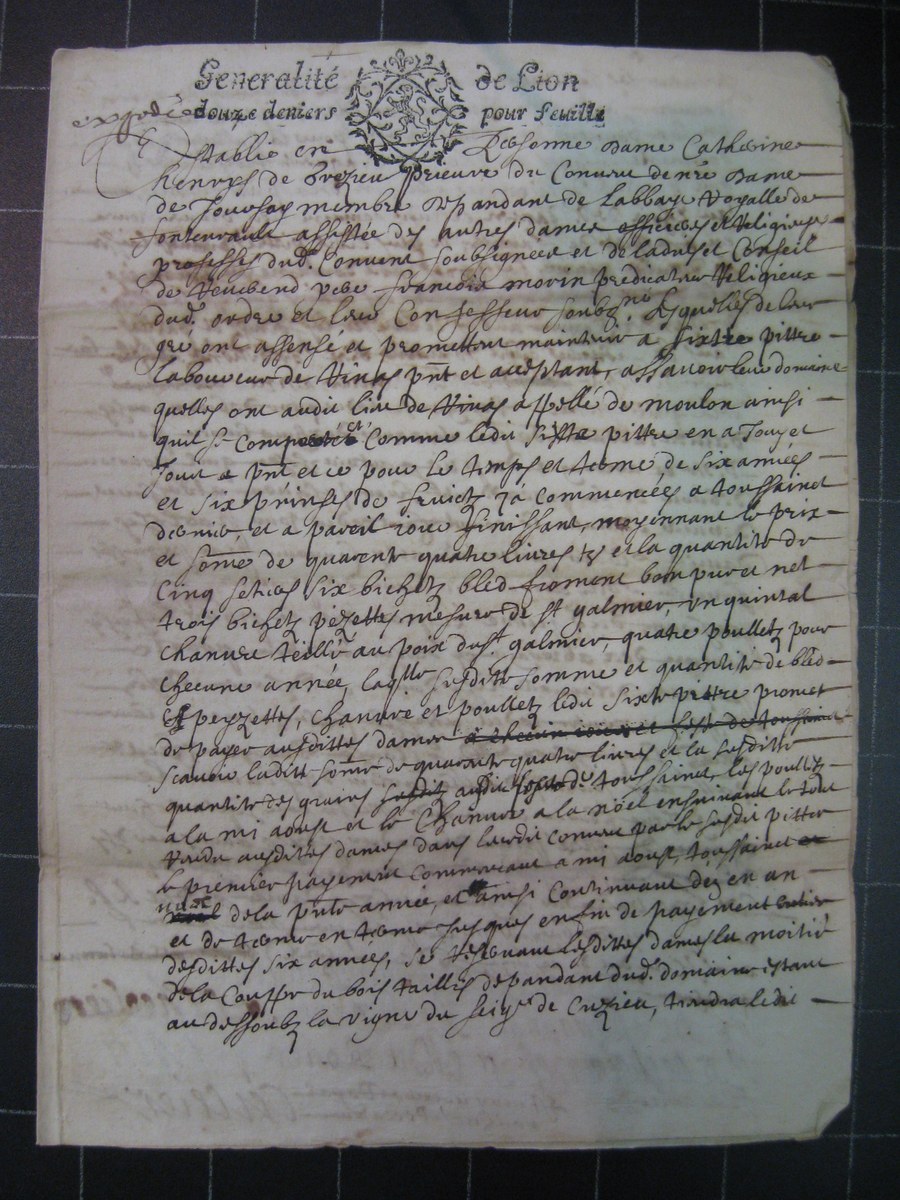 Generalité de Lion
douze deniers pour feuille
Establie en Personne dame Catherine
henrys de prieure du Convent de nre dame
de Jourssay membre depandant de labbaye Royalle de
fontevrault assistée des autres dames officieres et Religieuses
professes dud. Convent soubsignées et de ladvis et Conseil
de Reverend pere françois morin predicateur Religieux
dud. ordre et leur Confesseur soubzné. lesquelles de leur
gré ont assensé et promettent maintenir a Sixte pittre
laboureur de pnt et acceptant, assavoir leur domaine
quelles ont audit lieu de appellé de moulon ainsi
quil se comporte et comme ledit Sixte pittre en a Jouy et
Jouit a pnt et ce pour le temps et terme de six années
et six prinses de fruictz ja commencées a toussainct
dernier, et a pareil jour finissant, moyennant le prix
et some de quarente quatre livres tz et la quantité de
cinq setiers six bichetz bled froment bon pur et net
trois bichetz pezettes mesure de st galmier, un quintal
chanvre teillé au poix dud st. galmier, quatre poulletz pour
checune année, laqlle susditte somme et quantité de bled
peyzettes, chanvre et poulletz ledit Sixte pittre promet
de payer ausdittes dames a checun jour et feste de toussainct
scavoir laditte some de quarente quatre livres et la susditte
quantité des grains audit jour de toussainct, les poulletz
a la mi aoust et le chanvre a la noël ensuivant le tout
rendu ausdites dames dans leurdit convent par le susdit pittre
le premier payement commencant a mi aoust, toussainct et
noel de la pnte année, et ainsi continuant dez en an
et de terme en terme jusques en fin de payement entier
desdittes six années, se reservant lesdittes dames la moitié
de la couppe du bois taillis depandant dud. domaine estant
au dessoubz la vigne du seigr de Cuzieu, tiendra ledit